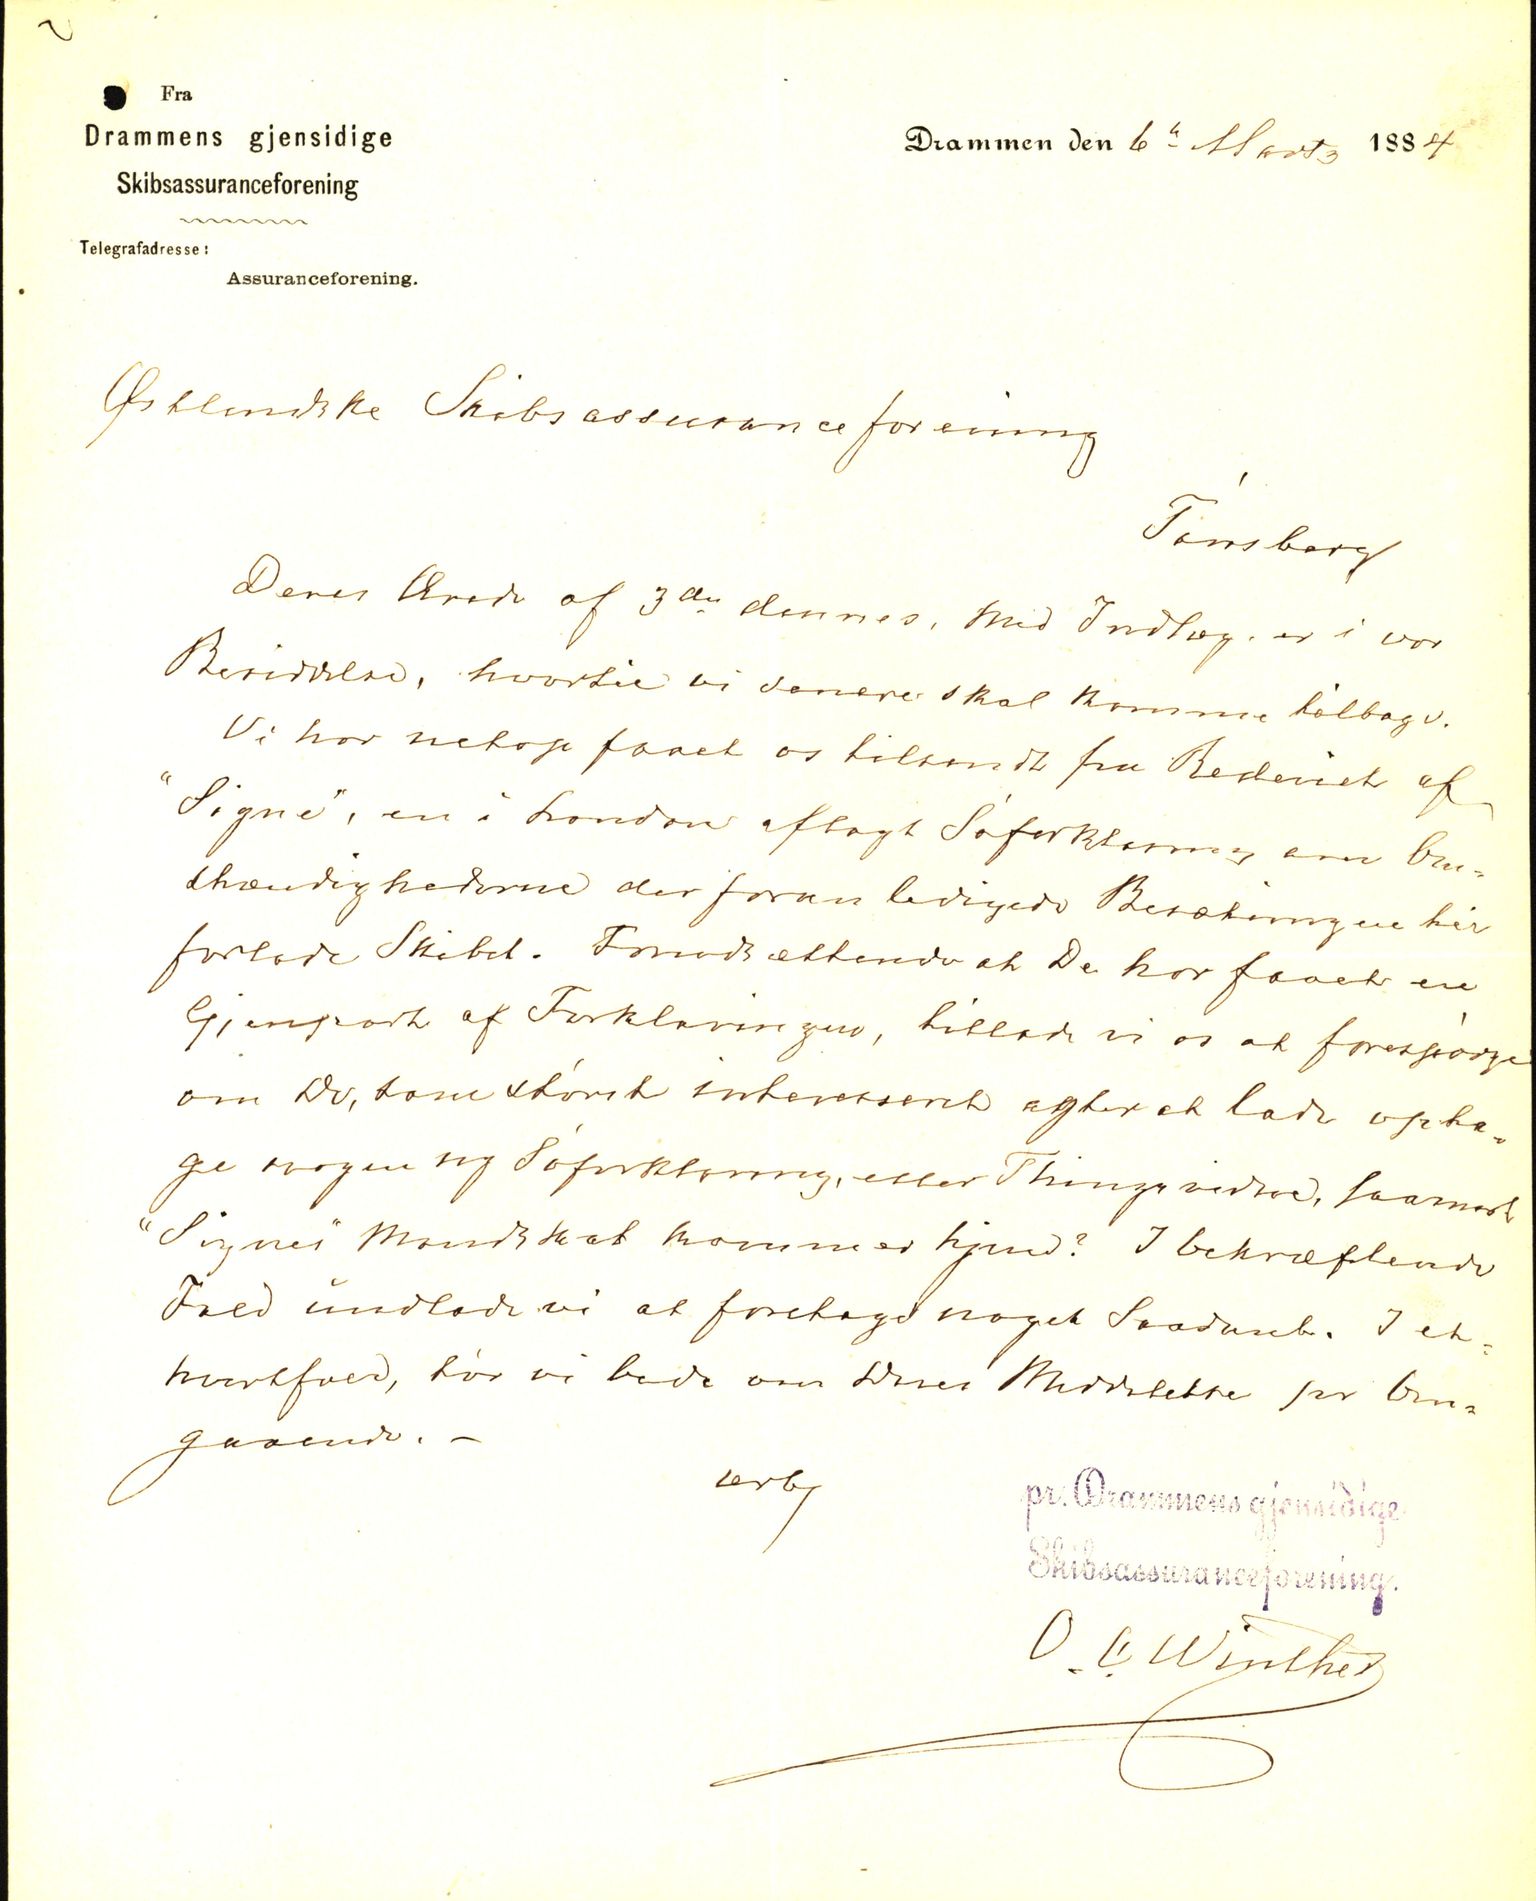 Fra
Drammens gjensidige
Skibsassuranceforening
Telegrafadresse:
Assuranceforening.
Drammen den 6te Marts 1884
Østlandske Skibsassuranceforening
Tønsberg
Deres Ærede af 3die dennes, med Indlæg er i vor
Besiddelse, hvortil vi senere skal komme tilbage.
Vi har netop faaet os tilsendt fra Rederiet af
"Signe", en i London aflagt Søforklaring om Om-
stændighederne der foranledigede Besætningen til
forlade Skibet. Forudsættende at De har faaet en
Gjenpart af Forklaringen, tillade vi os at forespørge
om De, som størst interesseret agter at lade opta-
ge nogen ny Søforklaring, eller Thingsvidne, saasnart
"Signes" Mandskab kommer hjem? I bekræftende
Fald undlade vi at foretage noget Saadant. I et-
hvertfald, tør vi bede om Deres Meddelelse pr Om-
gaaende. -
ærb
pr. Drammens gjensidige
Skibsassuranceforening.
O. C. Winther